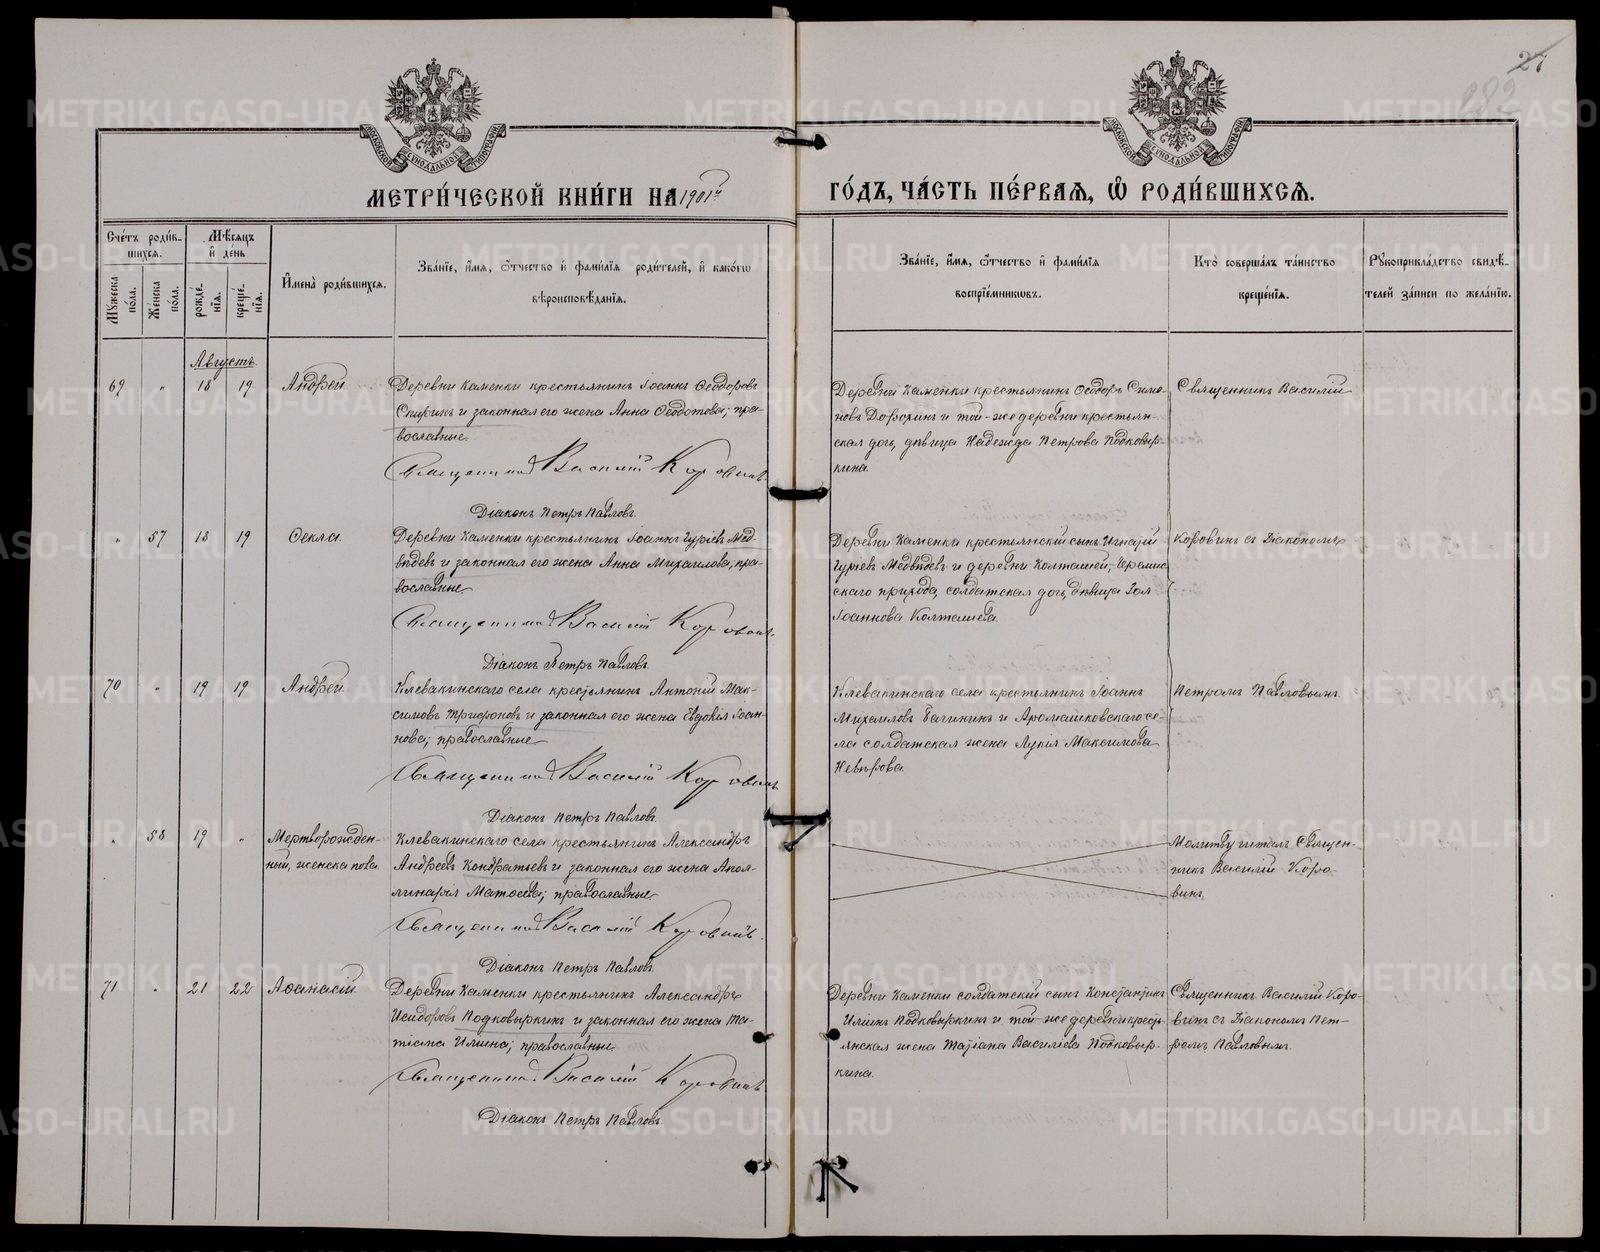 27
282
МОСКОВСКОЙ СѴНОДАЛЬНОЙ ТИПОГРАФІИ
МОСКОВСКОЙ СѴНОДАЛЬНОЙ ТИПОГРАФІИ
МЕТРИ́ЧЕСКОЙ КНИ́ГИ НА 1901й
ГО́ДЪ, ЧА́СТЬ ПЕ́РВАЯ, Ѽ РОДИ́ВШИХСЯ.
Сче́тъ роди́в-
шихся.
Мѣ́сяцъ
и҆ де́нь
Мꙋ́жеска
по́ла.
Же́нска
по́ла.
рожде́-
нїя.
креще́-
нїя.
И҆мена̀ роди́вшихся.
Зва́нїе, и҆́мя, ѻ҆́тчество и҆ фами́лїя роди́телей, и҆ како́гѡ
вѣроисповѣ́данїя.
Зва́нїе, и҆́мя, ѻ҆́тчество и҆ фами́лїя
воспрїе́мникѡвъ.
Кто̀ соверша́лъ та́инство
креще́нїя.
Рꙋкоприкла́дство свидѣ́-
телей за́писи по жела́нїю.
Августъ.
69 " 18 19 Андрей
Деревни Каменки крестьянинъ Іоаннъ Ѳеодоровъ
Спиринъ и законная его жена Анна Ѳеодотова; пра-
вославные.
Священникъ Василій Коровинъ.
Діаконъ Петръ Павловъ.
Деревни Каменки крестьянинъ Ѳеодоръ Симо-
новъ Дорохинъ и той-же деревни крестьян-
ская дочь, дѣвица Надежда Петрова Подковыр-
кина.
Священникъ Василій
" 57 18 19 Ѳекла.
Деревни Каменки крестьянинъ Іоаннъ Гуріевъ Мед-
вѣдевъ и законная его жена Анна Михаилова, пра-
вославные.
Священникъ Василій Коровинъ.
Діаконъ Петръ Павловъ.
Деревни Каменки крестьянскій сынъ Игнатій
Гуріевъ Медвѣдевъ и деревни Колташей, Черемис-
скаго прихода, солдатская дочь, дѣвица Зоя
Іоаннова Колташева.
Коровинъ съ Діакономъ
70 " 19 19 Андрей.
Клевакинскаго села крестьянинъ Антоній Мак-
симовъ Трифоновъ и законная его жена Евдокія Іоан-
нова; православные
Священникъ Василій Коровинъ
Діаконъ Петръ Павловъ.
Клевакинскаго села крестьянинъ Іоаннъ
Михаиловъ Бачининъ и Аромашковскаго се-
ла солдатская жена Лукія Максимова
Невѣрова.
Петромъ Павловымъ.
" 58 19 "
Мертворожден-
ный, женска пола.
Клевакинскаго села крестьянинъ Александръ
Андреевъ Кондратьевъ и законная его жена Апол-
линарія Матѳеева; православные
Священникъ Василій Коровинъ.
Діаконъ Петръ Павловъ.
Молитву читалъ Священ-
никъ Василій Коро-
винъ
71 " 21 22 Аѳанасій
Деревни Каменки крестьянинъ Александръ
Исидоровъ Подковыркинъ и законная его жена Та-
тіана Иліина; православные
Священникъ Василій Коровинъ.
Діаконъ Петръ Павловъ.
Деревни Каменки солдатскій сынъ Константинъ
Иліинъ Подковыркинъ и той-же деревни кресть-
янская жена Татіана Василіева Подковыр-
кина.
Священникъ Василій Коро-
винъ съ Діакономъ Пет-
ромъ Павловымъ.
METRIKI.GASO-URAL.RU